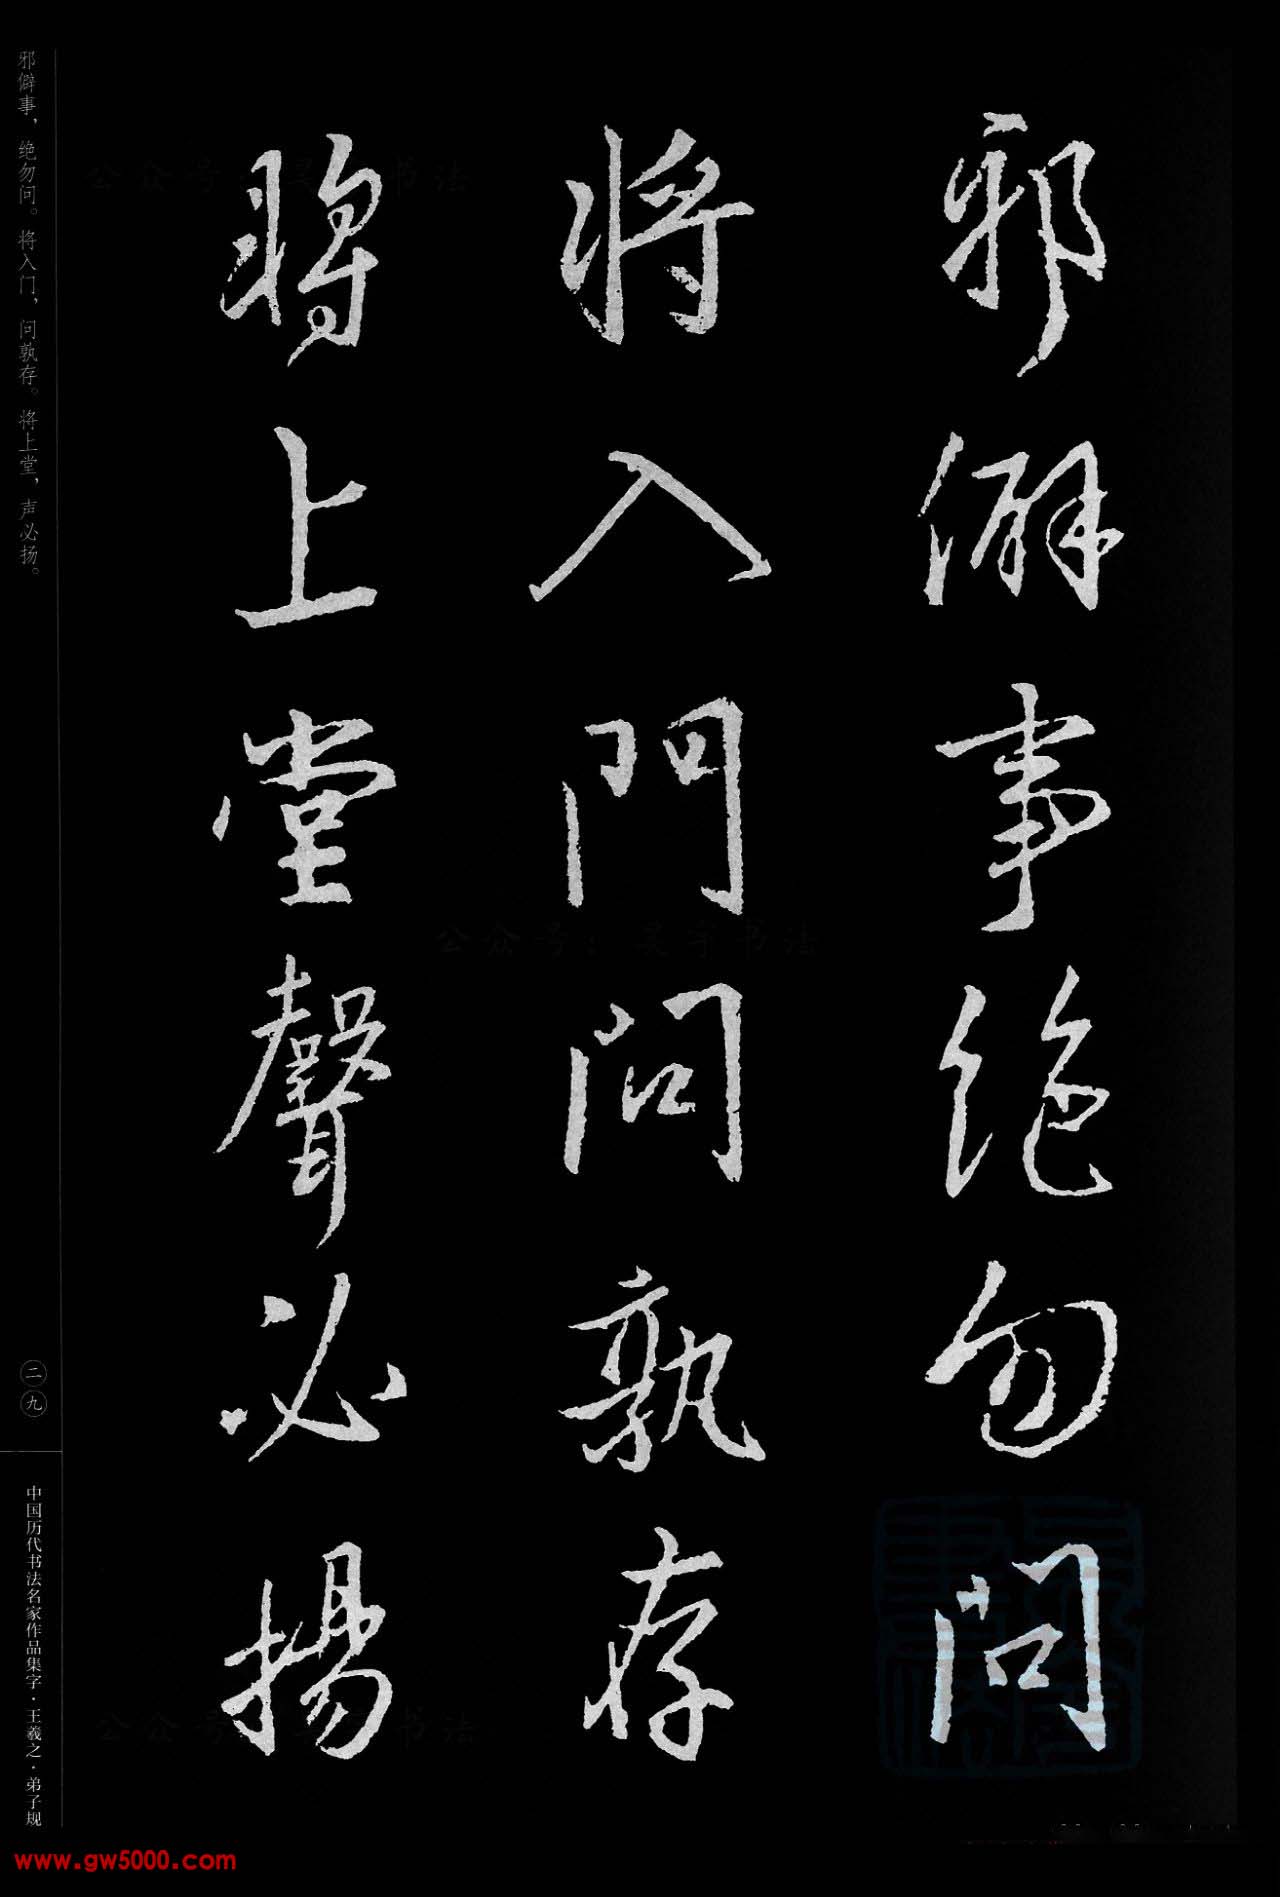 邪僻事絶勿问
将入門问孰存
將上堂聲必揚
邪僻事，绝勿问。将入门，问孰存。将上堂，声必扬。
二九
中国历代书法名家作品集字·王羲之·弟子规
公众号：昊宇书法
www.gw5000.com